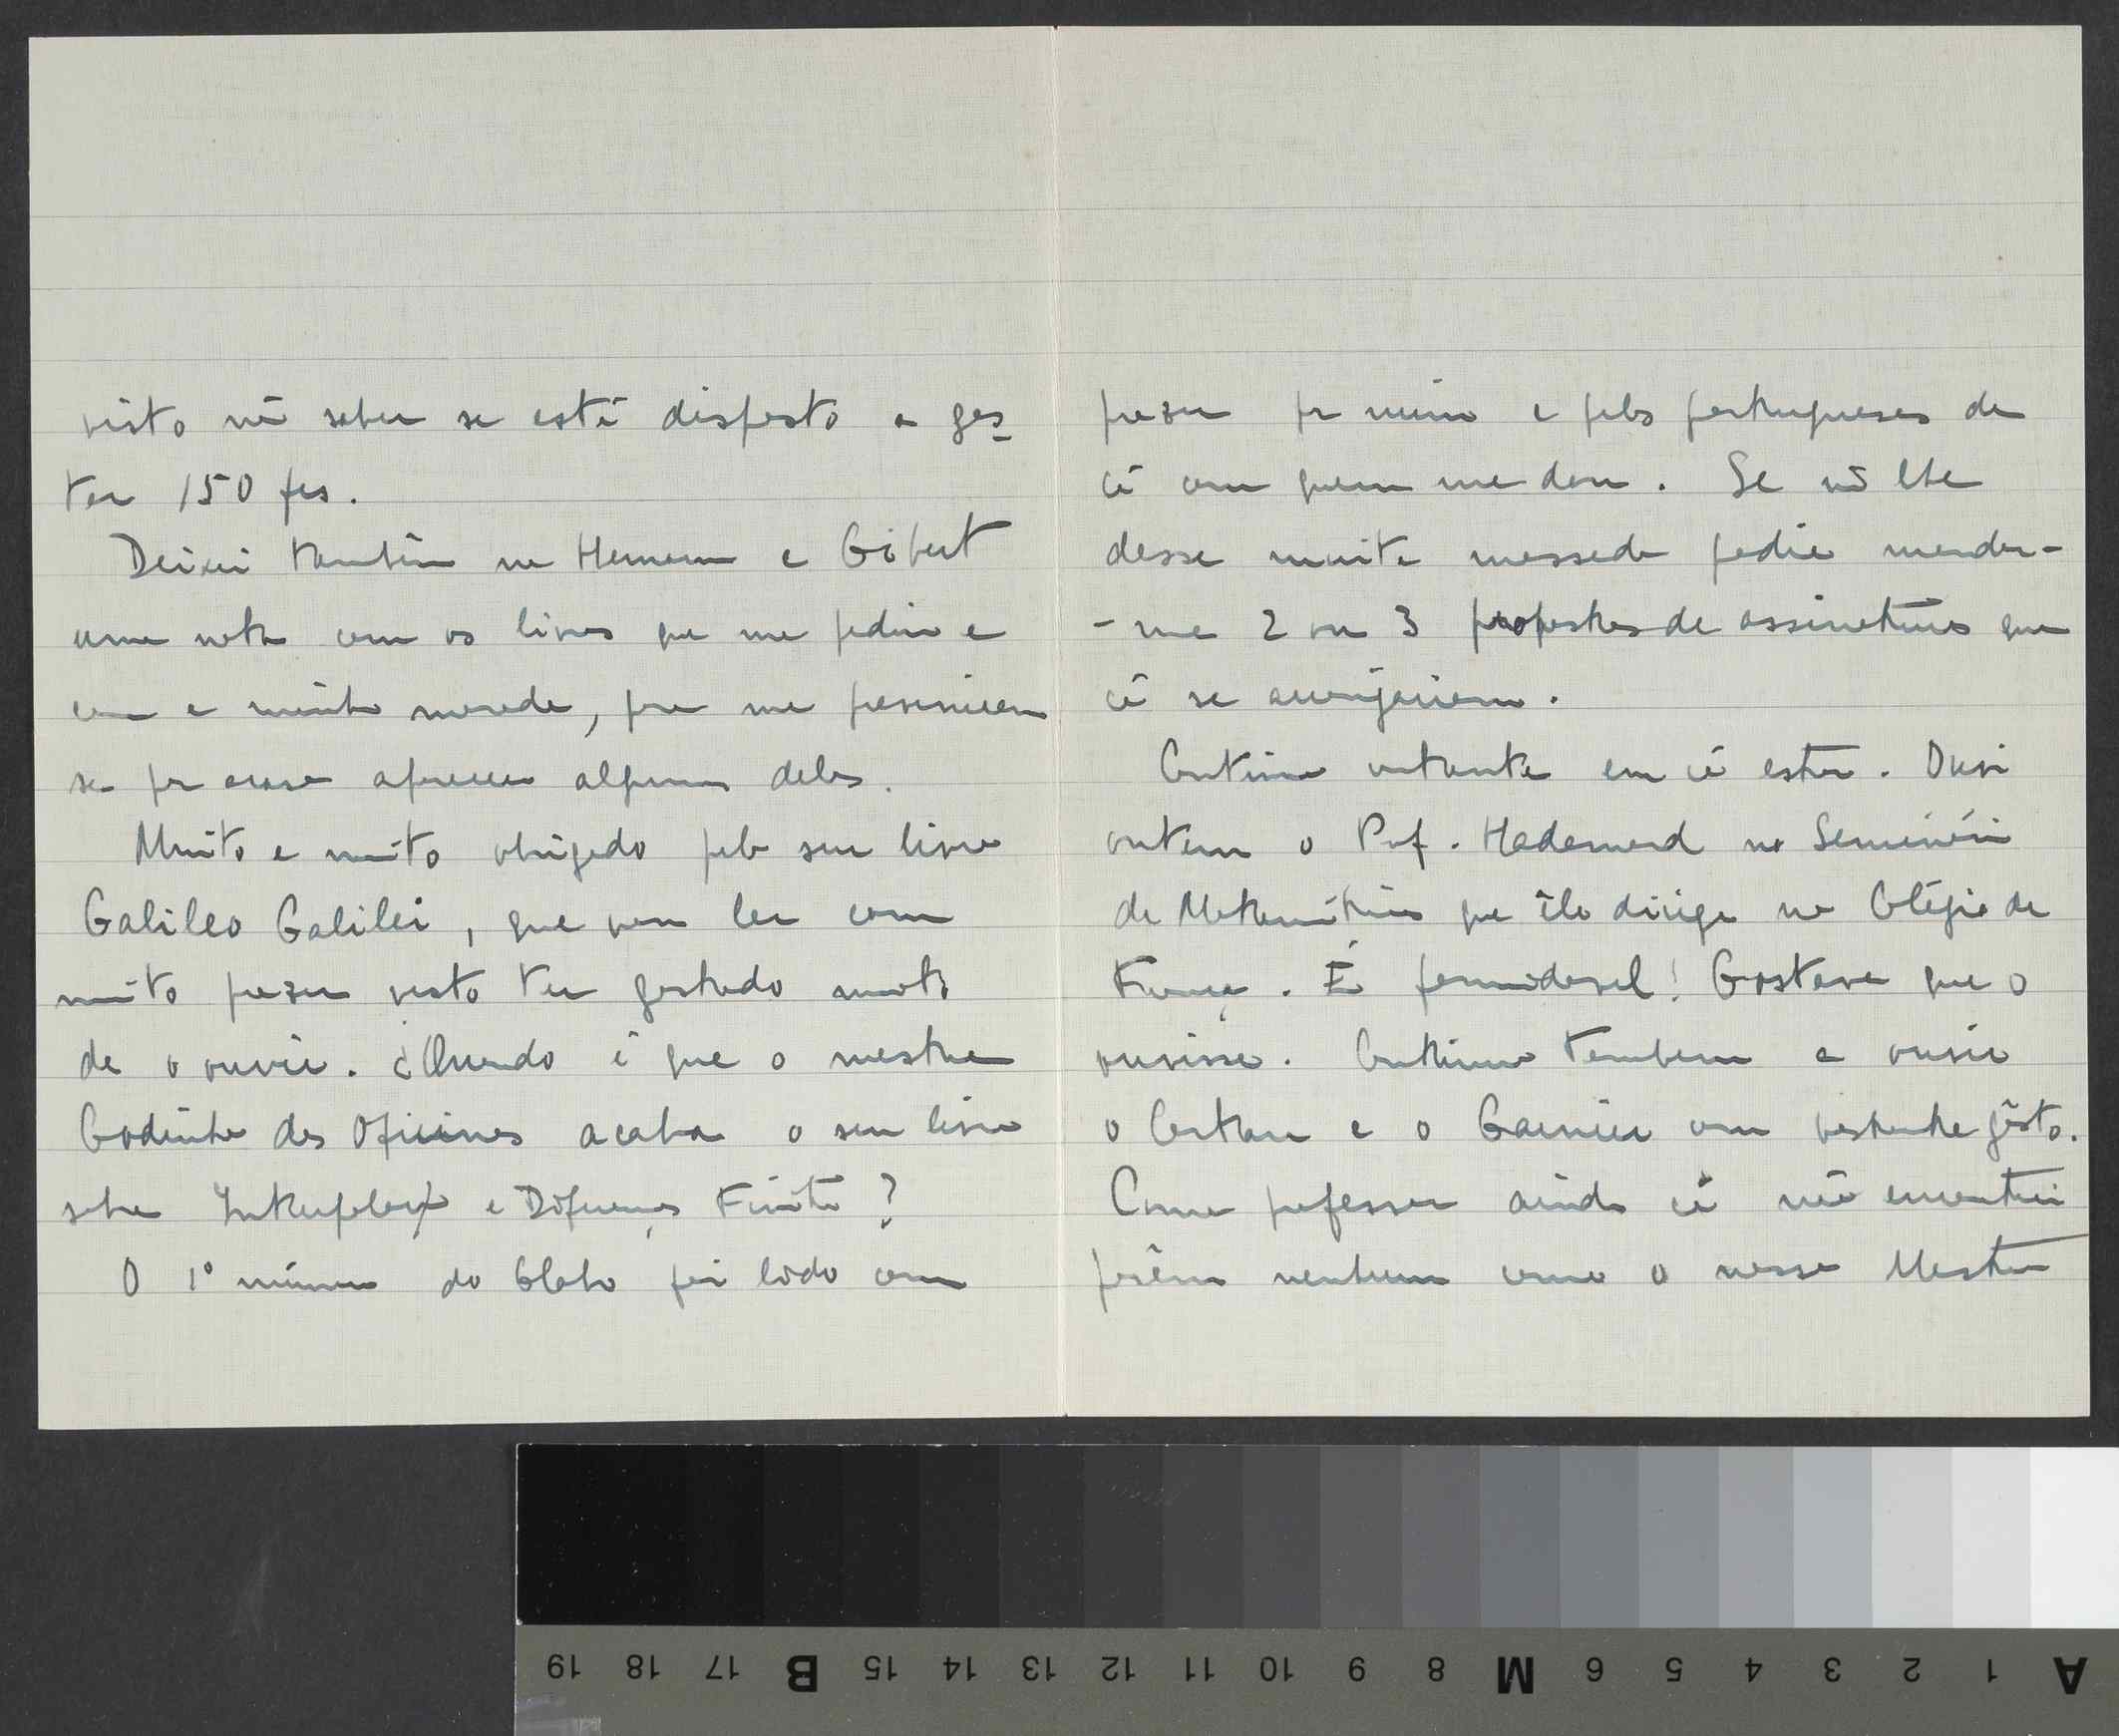 visto não saber se está disposto a gas-
tar 150 frs.
Deixei também na Hermann e Gibert
uma nota com os livros que me pediu e
com a minha morada, para me prevenirem
se por acaso aparecer algum deles.
Muito e muito obrigado pelo seu livro
Galileo Galilei, que vou ler com
muito prazer visto ter gostado muito
de o ouvir. ¿Quando é que o mestre
Godinho das Oficinas acaba o seu livro
sobre Interpolação e Diferenças Finitas?
O 1º número do Globo foi lido com
prazer por mim e pelos portugueses de
cá com quem me dou. Se não lhe
desse muita massada pedia mandar-
-me 2 ou 3 propostas de assinaturas que
cá se arranjariam.
Continuo contente em cá estar. Ouvi
ontem o Prof. Hadamard no Seminário
de Matemáticas que êle dirige no Colégio de
França. É formidável! Gostava que o
ouvisse. Continuo tambem a ouvir
o Cartan e o Garnier com bastante gôsto.
Como professor ainda cá não encontrei
porêm nenhum como o nosso Mestre
B M A
19 18 17 15 14 13 12 11 10 9 8 6 5 4 3 2 1